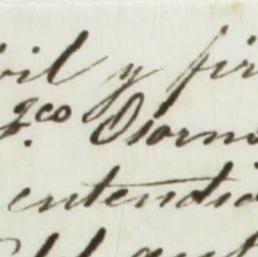 vil y fir
gco Osorn
entendio